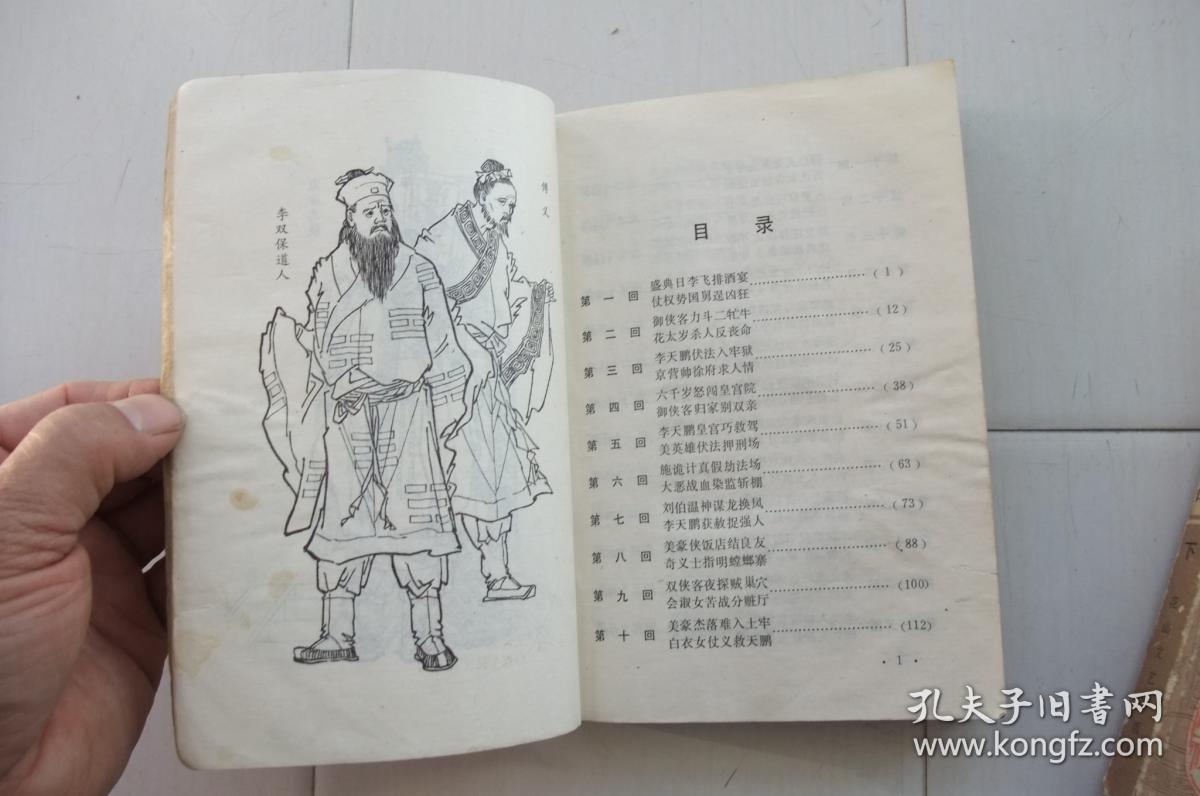 李双保道人
傅义
目录
第一回
盛典日李飞排酒宴
仗权势国舅逞凶狂
(1)
第二回
御侠客力斗二牤牛
花太岁杀人反丧命
(12)
第三回
李天鹏伏法入牢狱
京营帅徐府求人情
(25)
第四回
六千岁怒闯皇宫院
御侠客归家别双亲
(38)
第五回
李天鹏皇宫巧救驾
美英雄伏法押刑场
(51)
第六回
施诡计真假劫法场
大恶战血染监斩棚
(63)
第七回
刘伯温神谋龙换凤
李天鹏获赦捉强人
(73)
第八回
美豪侠饭店结良友
奇义士指明螳螂寨
(88)
第九回
双侠客夜探贼巢穴
会淑女苦战分赃厅
(100)
第十回
美豪杰落难入土牢
白衣女仗义救天鹏
(112)
·1·
下
孔夫子旧书网
www.kongfz.com